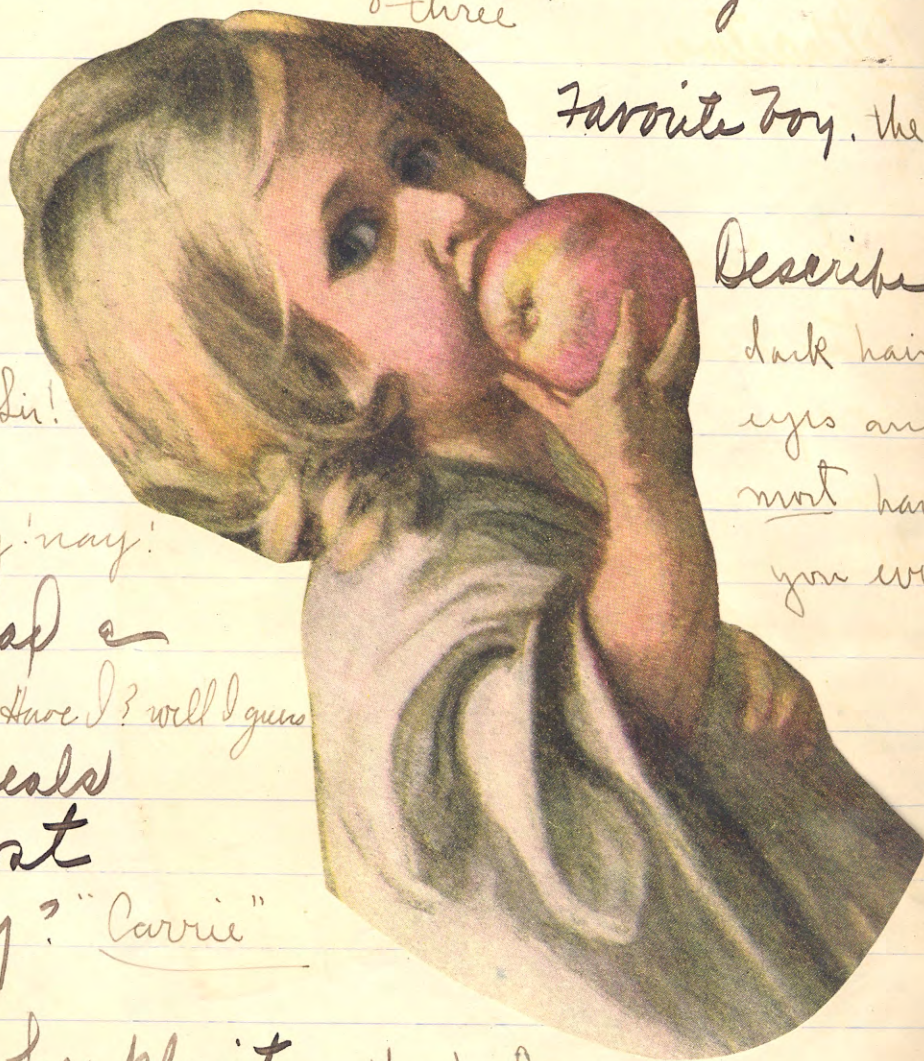 three
Favorite boy. the
Describe
dark hair
eyes and
Sir!
most han
nay!
you eve
ad a
Have I? well I guess
eals
st
y? "Carrie"
it